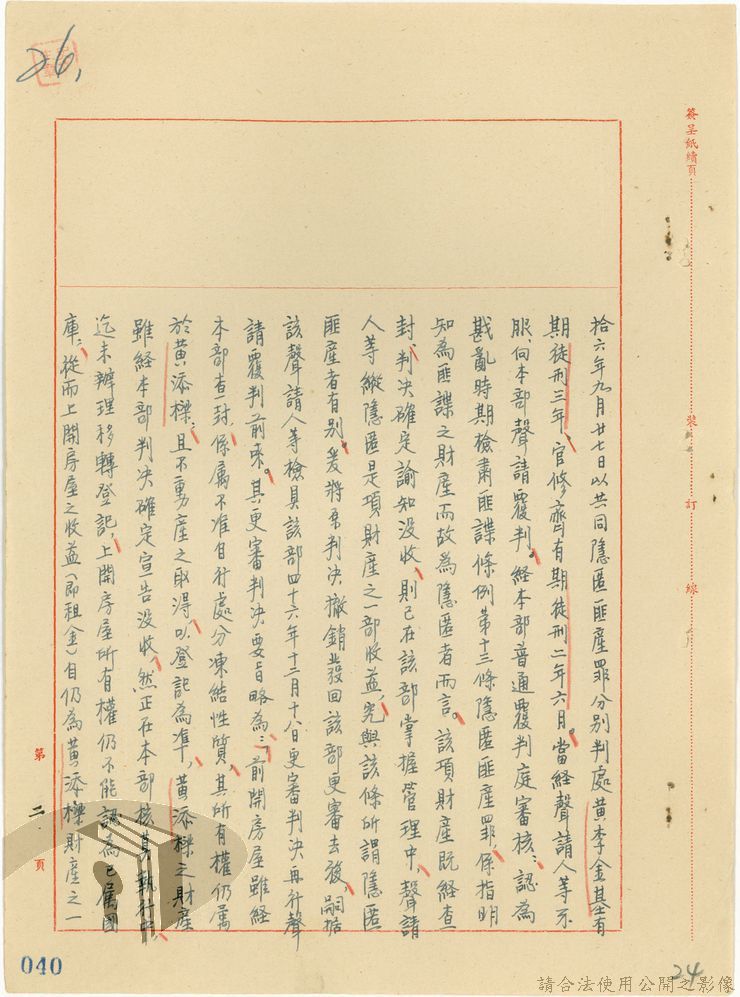 26,
簽呈紙續頁
裝
訂
線
拾六年九月廿七日以共同隱匿匪產罪分別判處黃李金基有
期徒刑三年、官修齊有期徒刑二年六月。當經聲請人等不
服、向本部聲請覆判。經本部普通覆判庭審核：認為
戡亂時期檢肅匪諜條例第十三條隱匿匪產罪、係指明
知為匪諜之財產而故為隱匿者而言。該項財產既經查
封、判決確定諭知沒收、則已在該部掌握管理中、聲請
人等縱隱匿是項財產之一部收益、究與該條所謂隱匿
匪產者有別。爰將原判決撤銷發回該部更審去後、嗣據
該聲請人等檢具該部四十六年十二月十八日更審判決再行聲
請覆判前來。其更審判決要旨略為：「一、前開房屋雖經
本部查封、係屬不准自行處分凍結性質、其所有權仍屬
於黃添樑、且不動產之取得、以登記為準、黃添樑之財產
雖經本部判決確定宣告沒收、然正在本部核其執行中、
迄未辦理移轉登記、上開房屋所有權仍不能認為已屬國
庫、從而上開房屋之收益（即租金）自仍為黃添樑財產之一
第二頁
040
24
請合法使用公開之影像